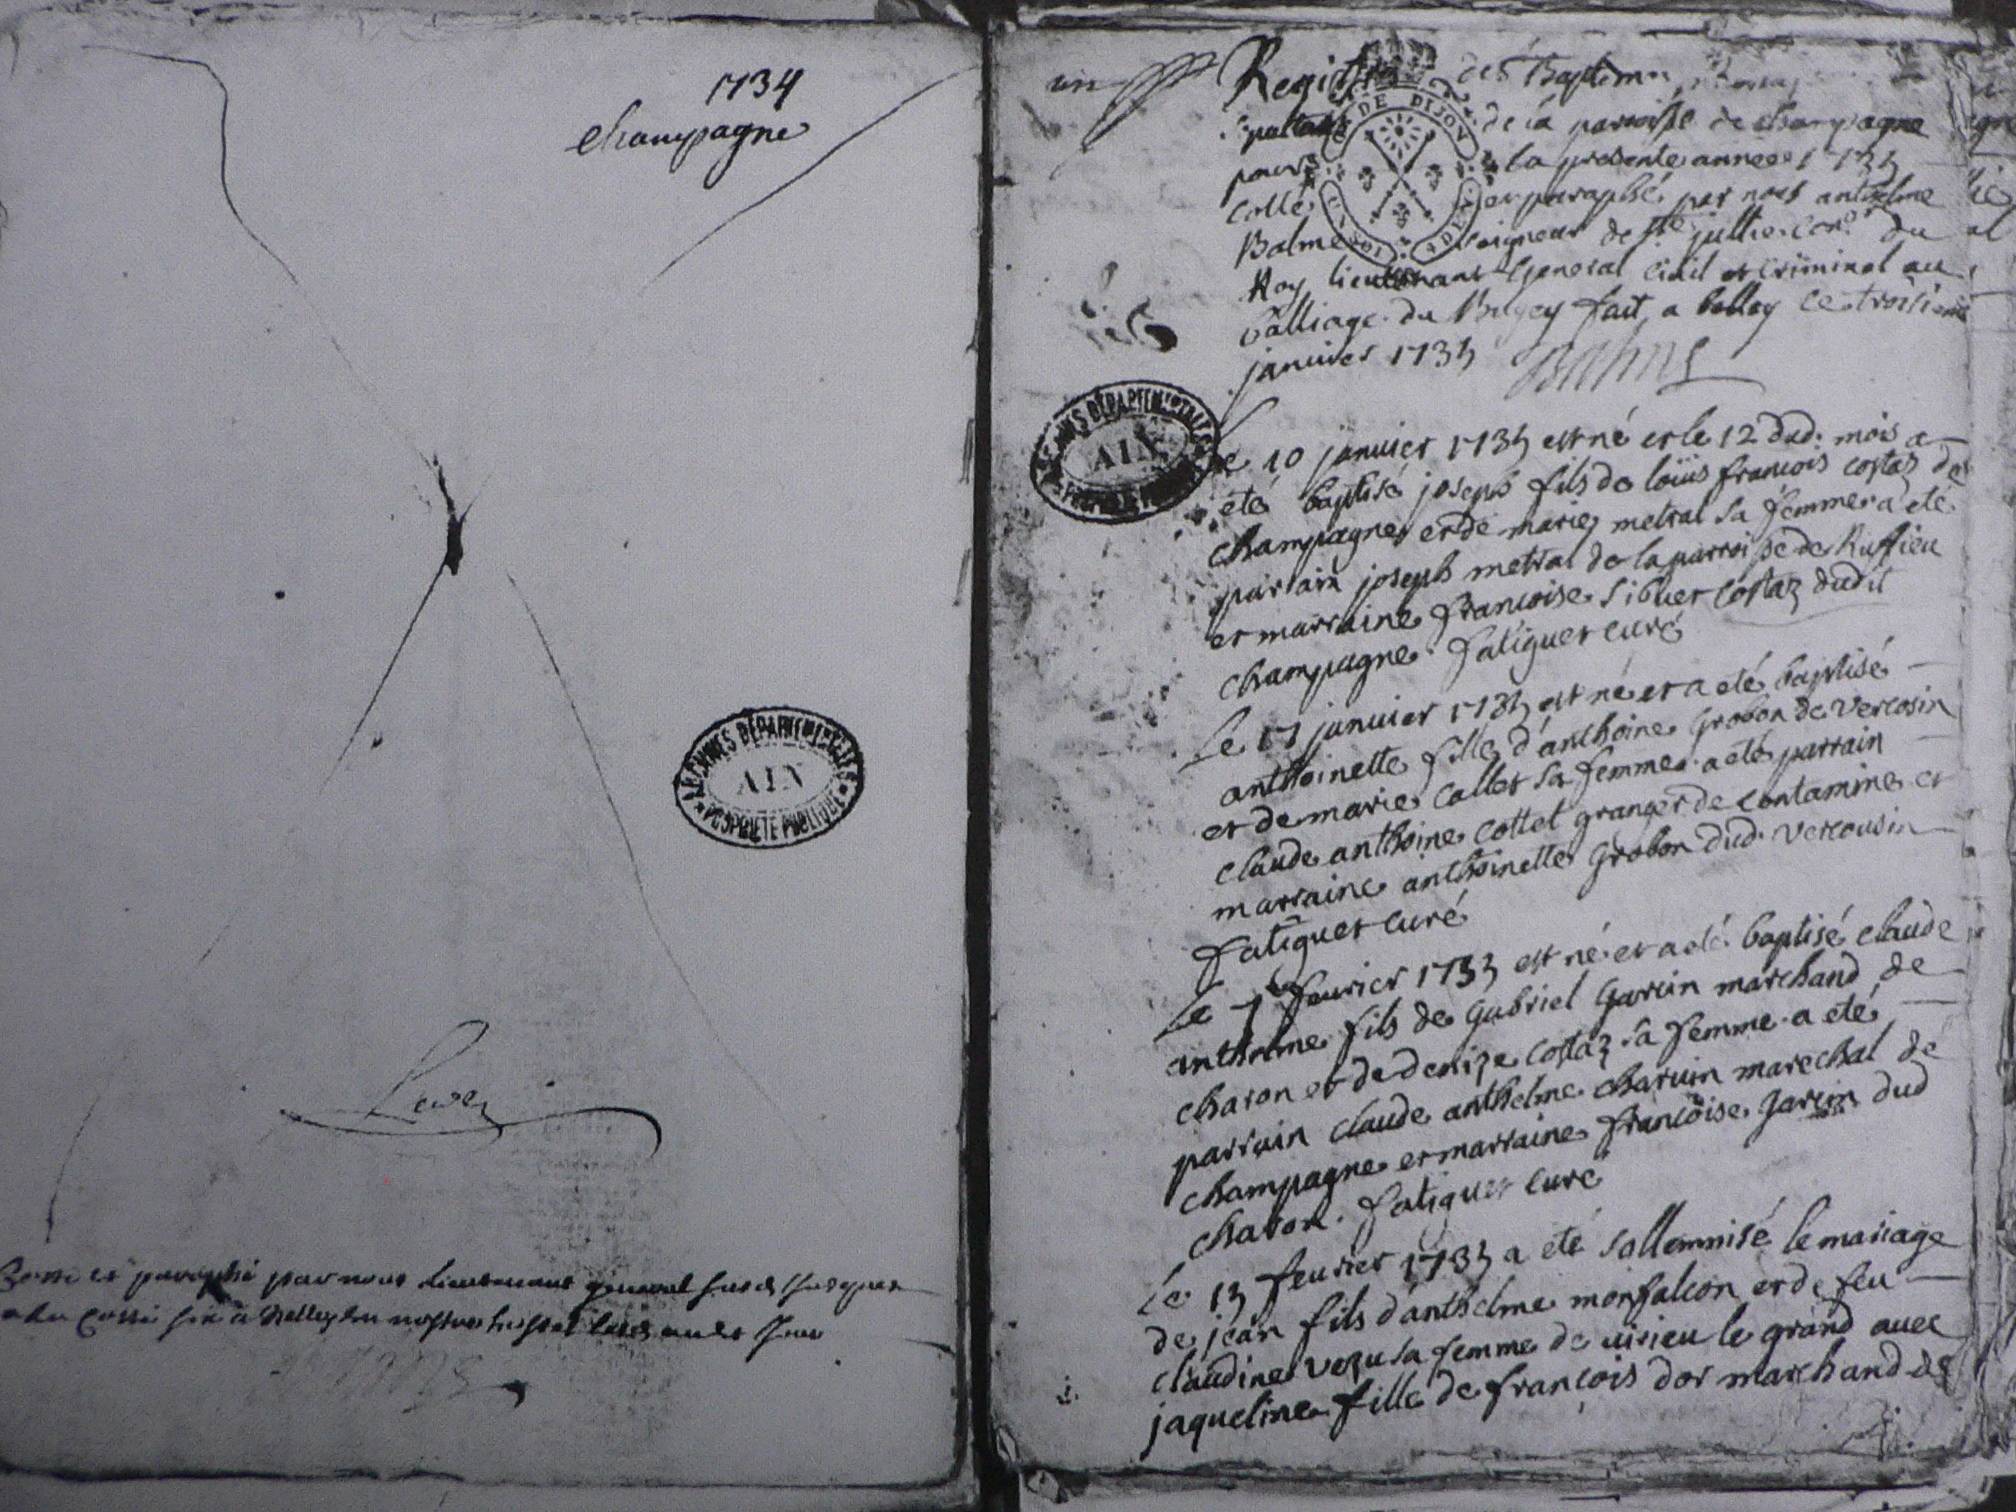 1734
Champagne
ARCHIVES DÉPARTEMENTALES
AIN
PROPRIÉTÉ PUBLIQUE
paraphé par nous Lieutenant general
un
Registre des Baptem
de la paroisse de champagne
pour la presente année 1735
Cotté et paraphé par nous anthelme
Balme seigneur de ste jullie Coner du
Roy lieutenant General Civil et Criminel au
balliage du Bugey fait a belley ce troisieme
janvier 1735 Balme
DE DIJON
ARCHIVES DÉPARTEMENTALES
AIN
PROPRIÉTÉ PUBLIQUE
Le 10 janvier 1735 est né et le 12 dud. mois a
eté baptisé joseph fils de loüis françois costaz de
champagne et de marie metral sa femme a eté
parrain joseph metral de la parroisse de Ruffieu
et marraine françoise sibuet costaz dudit
champagne. fatiguet curé
Le 17 janvier 1735 est né et a eté baptisé
anthoinette fille d'anthoine Grobon de vercosin
et de marie callet sa femme a eté parrain
claude anthoine cottet granger de contamine et
marraine anthoinette Grobon dud. vercousin
fatiguet curé
Le fevrier 1735 est né et a eté baptisé claude
anthelme fils de Gabriel Garcin marchand de
charon et de denize costaz sa femme a eté
parrain claude anthelme charvin marechal de
champagne et marraine françoise Garcin dud
charon. fatiguet curé
Le 13 fevrier 1735 a eté sollemnisé le mariage
de jean fils d'anthelme monfalcon et de feu
claudine vezu sa femme de virieu le grand avec
jaqueline fille de françois dor marchand de